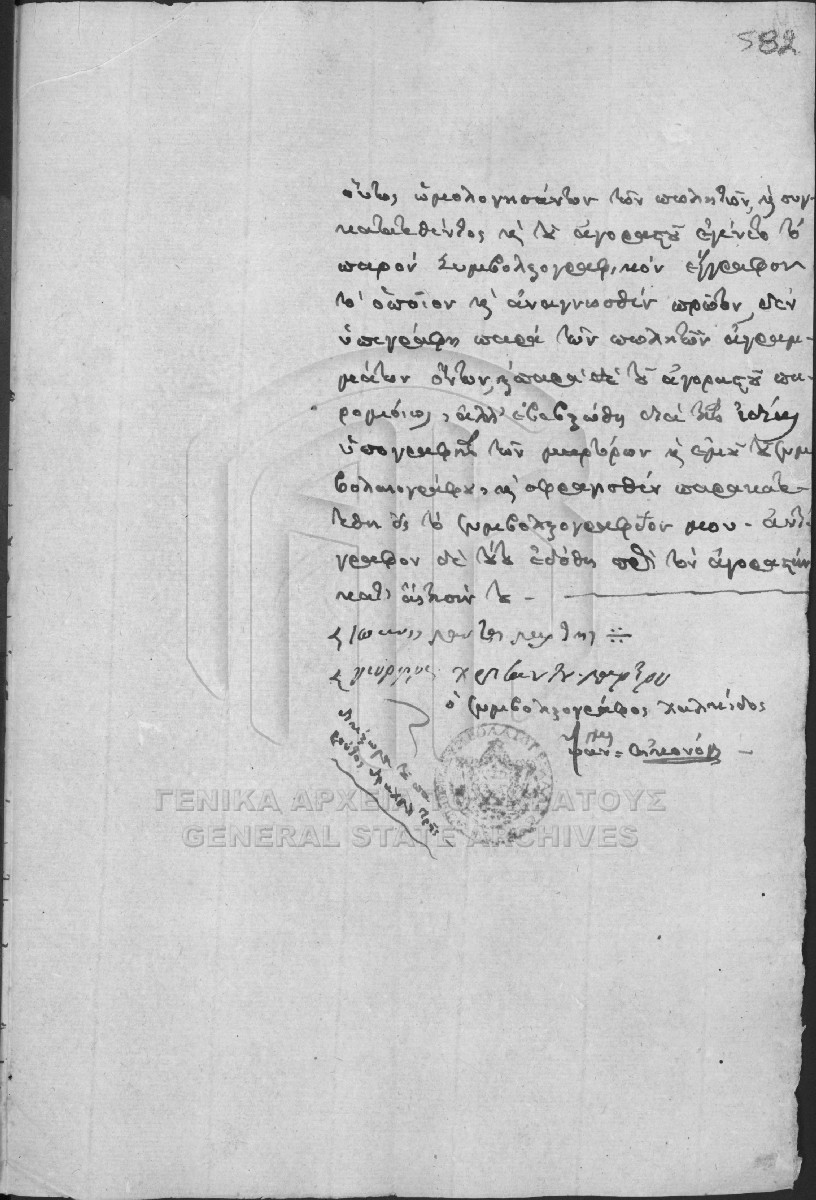 582
οὕτως ὡμολογησάντων τῶν πωλητῶν, ϗ συγ-
κατατεθέντος ϗ τȣ͂ ἀγοραστοῦ ἐγένετο τὸ
παρόν Συμβολαιογραφικόν ἔγγραφον
τὸ ὁποῖον ϗ ἀναγνωσθέν πρῶτον, δέν
ὑπεγράφη παρά τῶν πωλητῶν ἀγραμ-
μάτων ὄντων, ϗ παρά δέ τοῦ ἀγοραστοῦ πα-
ρομοίως, ἀλλ' ἐβεβαιώθη διά τῆς ἰδίας
ὑπογραφῆς τῶν μαρτύρων ϗ ἐμοῦ τȣ͂ συμ
βολαιογράφου, ϗ σφραγισθέν παρακατε-
τέθη εἰς τό συμβολαιογραφεῖον μου - ἀντί
γραφον δέ τȣ͂το ἐδόθη πρός τόν ἀγοραστήν
κατ' αἴτησίν τȣ -
μάρτυς
γεώργιος μάρτυς
ὁ συμβολαιογράφος χαλκίδος
Οἰκονόμȣ
ΓΕΝΙΚΑ ΑΡΧΕΙΑ ΤΟΥ ΚΡΑΤΟΥΣ
GENERAL STATE ARCHIVES